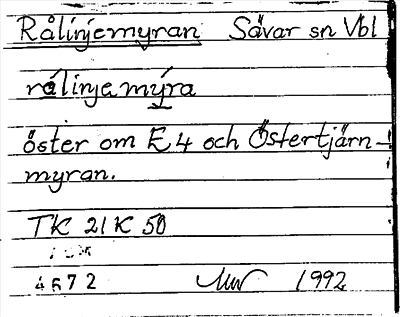 Rålinjemyran Sävar sn Vbl
rålinjemýra
öster om E4 och Östertjärn-
myran.
TK 21K 50
4672
1992